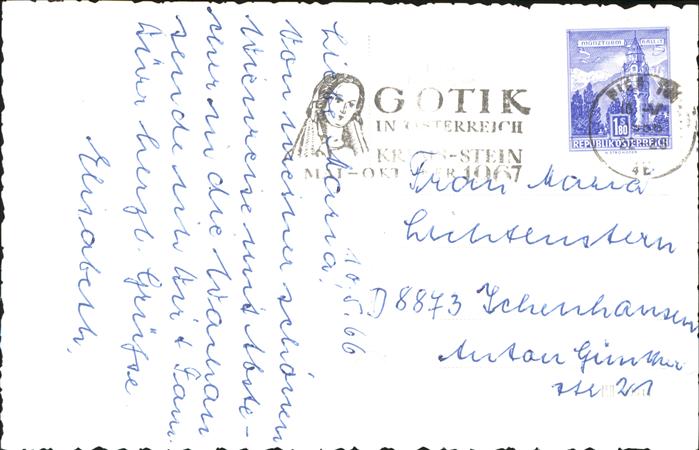 10.5.66
Liebe Maria,
Von meiner schönen
Wienreise mit Abste-
cher in die Wachau
sende ich Dir & Fam.
Dir herzl. Grüsse
Elisabeth.
GOTIK
IN ÖSTERREICH
KREMS-STEIN
MAI-OKTOBER 1967
WIEN
MÜNZTURM HALL I.T.
S 1.80
REPUBLIK ÖSTERREICH
Frau Maria
Lichtenstern
D 8873 Ichenhausen
Anton Günther
str 21